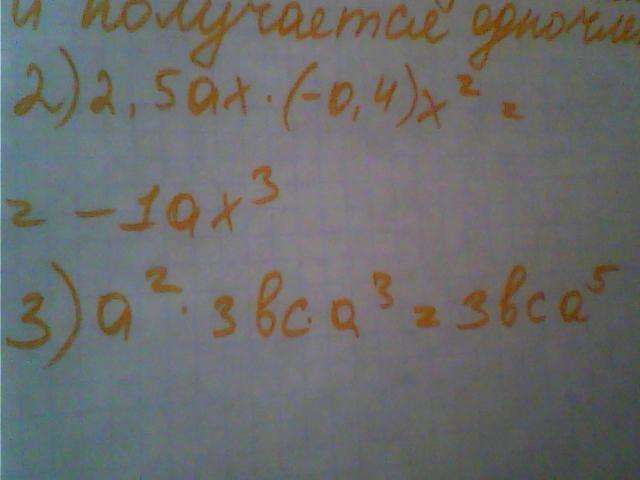 и получается одночлен
2) 2,5ax·(-0,4)x² =
= -1ax³
3) a²·3bc·a³ = 3bca⁵